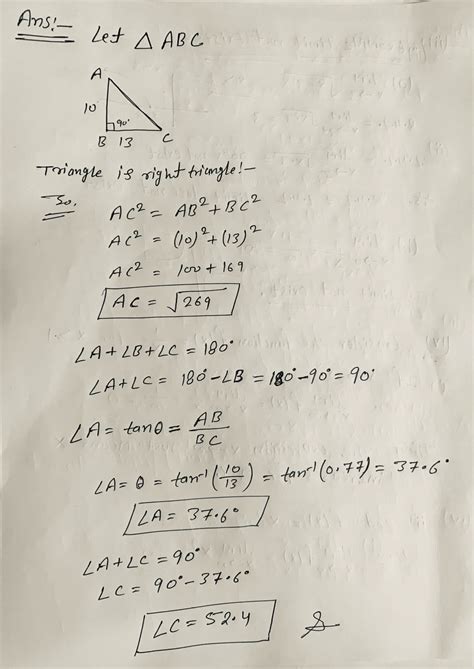 Ans:-
Let △ ABC
A
10
90°
B 13 C
Triangle is right triangle!-
So,
AC² = AB² + BC²
AC² = (10)² + (13)²
AC² = 100 + 169
AC = √269
∠A + ∠B + ∠C = 180°
∠A + ∠C = 180° - ∠B = 180° - 90° = 90°
∠A = tanθ = AB/BC
∠A = θ = tan⁻¹(10/13) = tan⁻¹(0.77) = 37.6°
∠A = 37.6°
∠A + ∠C = 90°
∠C = 90° - 37.6°
∠C = 52.4